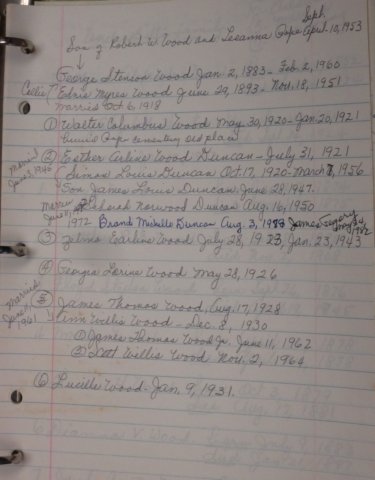 Sept.
Son of Robert W. Wood and Leeanna Pope April 10, 1953
George Stenson Wood Jan. 2, 1883 - Feb. 2, 1960
Edna Mynes Wood June 29, 1893 - Nov. 18, 1951
Married Oct 6, 1918
① Walter Columbus Wood May 30, 1920 - Jan. 20, 1921
buried Pop cemetery old place
② Esther Arline Wood Duncan - July 31, 1921
Married June 1946
Louis Duncan Oct 17, 1920 - March 7, 1956
Son James Louis Duncan June 28, 1947.
Married June
Norwood Duncan Aug. 16, 1950
1972 Brand Michelle Duncan Aug. 3, James Gregory May 1982
③ Earline Wood July 28, 1923, Jan. 23, 1943
④ Georgia Lorine Wood May 28, 1926
Married June 1961
⑤ James Thomas Wood, Aug. 17, 1928
Ann Willis Wood - Dec. 8, 1930
① James Thomas Wood Jr. June 11, 1962
② Matt Willis Wood Nov. 2, 1964
⑥ Lucille Wood - Jan. 9, 1931.